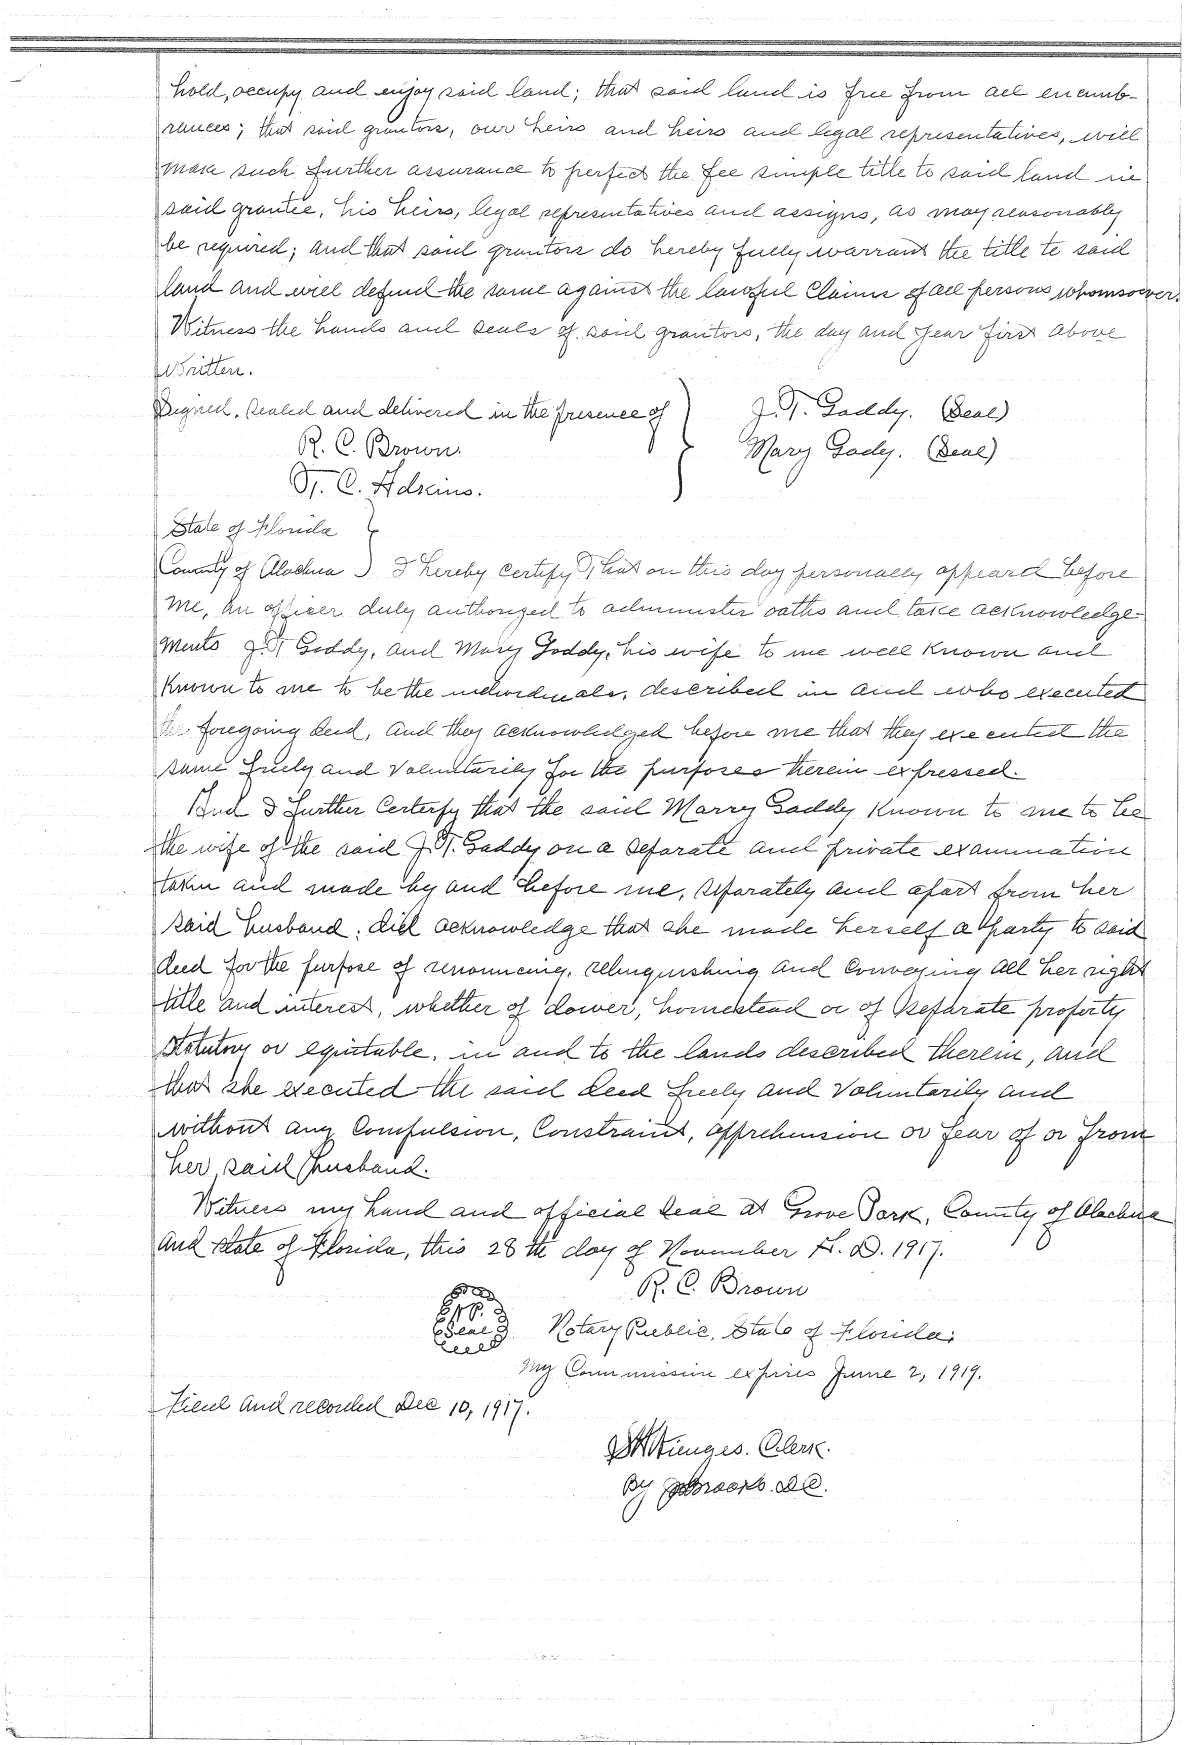 hold, occupy and enjoy said land; that said land is free from all encumb-
rances; that said grantors, our heirs and heirs and legal representatives, will
make such further assurance to perfect the fee simple title to said land in
said grantee, his heirs, legal representatives and assigns, as may reasonably
be required; and that said grantors do hereby fully warrant the title to said
land and will defend the same against the lawful Claims of all persons whomsoever.
Witness the hands and seals of said grantors, the day and year first above
Written.
Signed, sealed and delivered in the presence of } J. T. Gaddy. (Seal)
R. C. Brown. Mary Gady. (Seal)
T. C. Adkins.
State of Florida }
County of Alachua } I hereby certify That on this day personally appeard before
me, an officer duly authorized to administer oaths and take acknowledge-
ments J. T Gaddy, and Mary Gaddy, his wife to me well known and
known to me to be the individuals, described in and who executed
the foregoing deed, and they acknowledged before me that they executed the
same freely and voluntarily for the purposes therein expressed.
And I further Certerfy that the said Marry Gaddy known to me to be
the wife of the said J. T. Gaddy on a separate and private examination
taken and made by and before me, separately and apart from her
said husband, did acknowledge that she made herself a party to said
deed for the purpose of renouncing, relinquishing and conveying all her right
title and interest, whether of dower, homestead or of separate property
statutory or equitable, in and to the lands described therein, and
that she executed the said deed freely and voluntarily and
without any Compulsion, Constraint, apprehension or fear of or from
her said husband.
Witness my hand and official seal at Grove Park, County of Alachua
and state of Florida, this 28th day of November A. D. 1917.
R. C. Brown
N.P.
Seal Notary Public, State of Florida.
My Commission expires June 2, 1919.
Filed and recorded Dec 10, 1917.
Wienges. Clerk.
By Brooks. D.C.